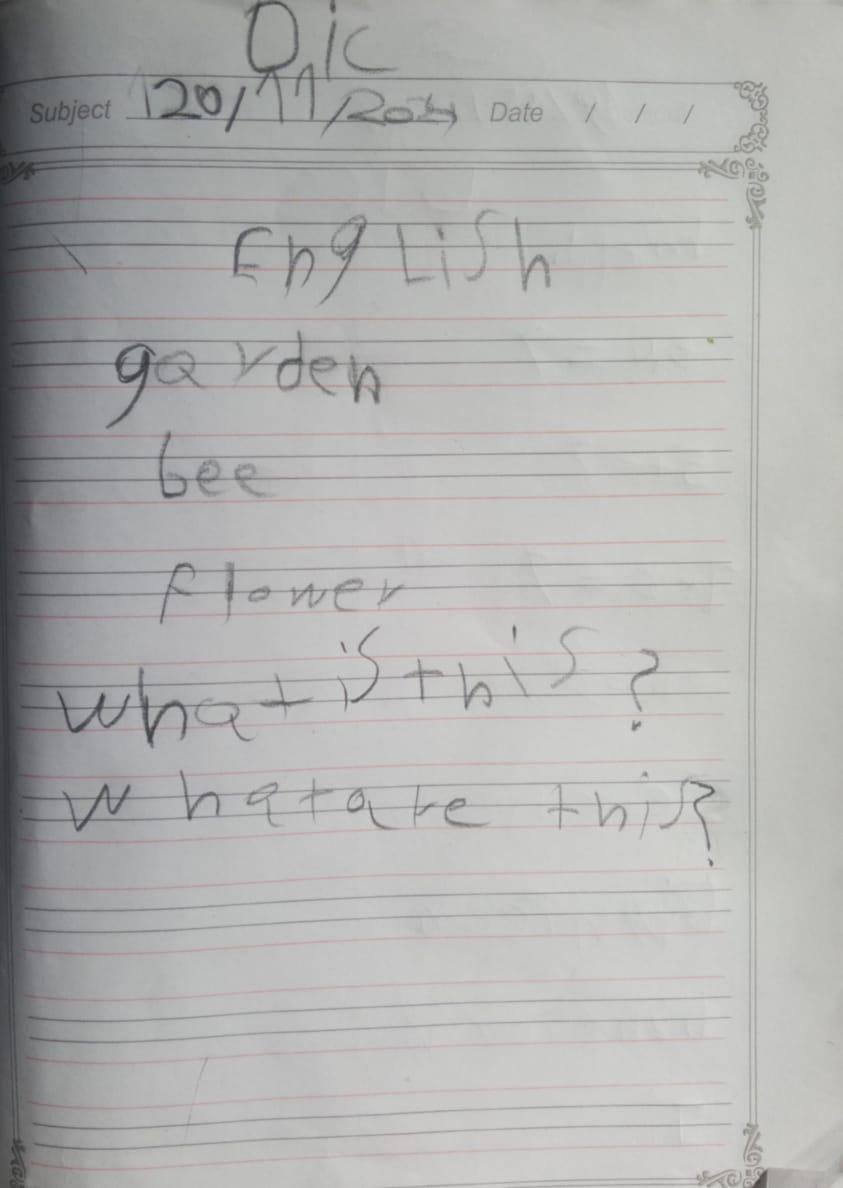 Dic
Subject 20/11/202 Date / / /
English
garden
bee
flower
what is this?
what are this?